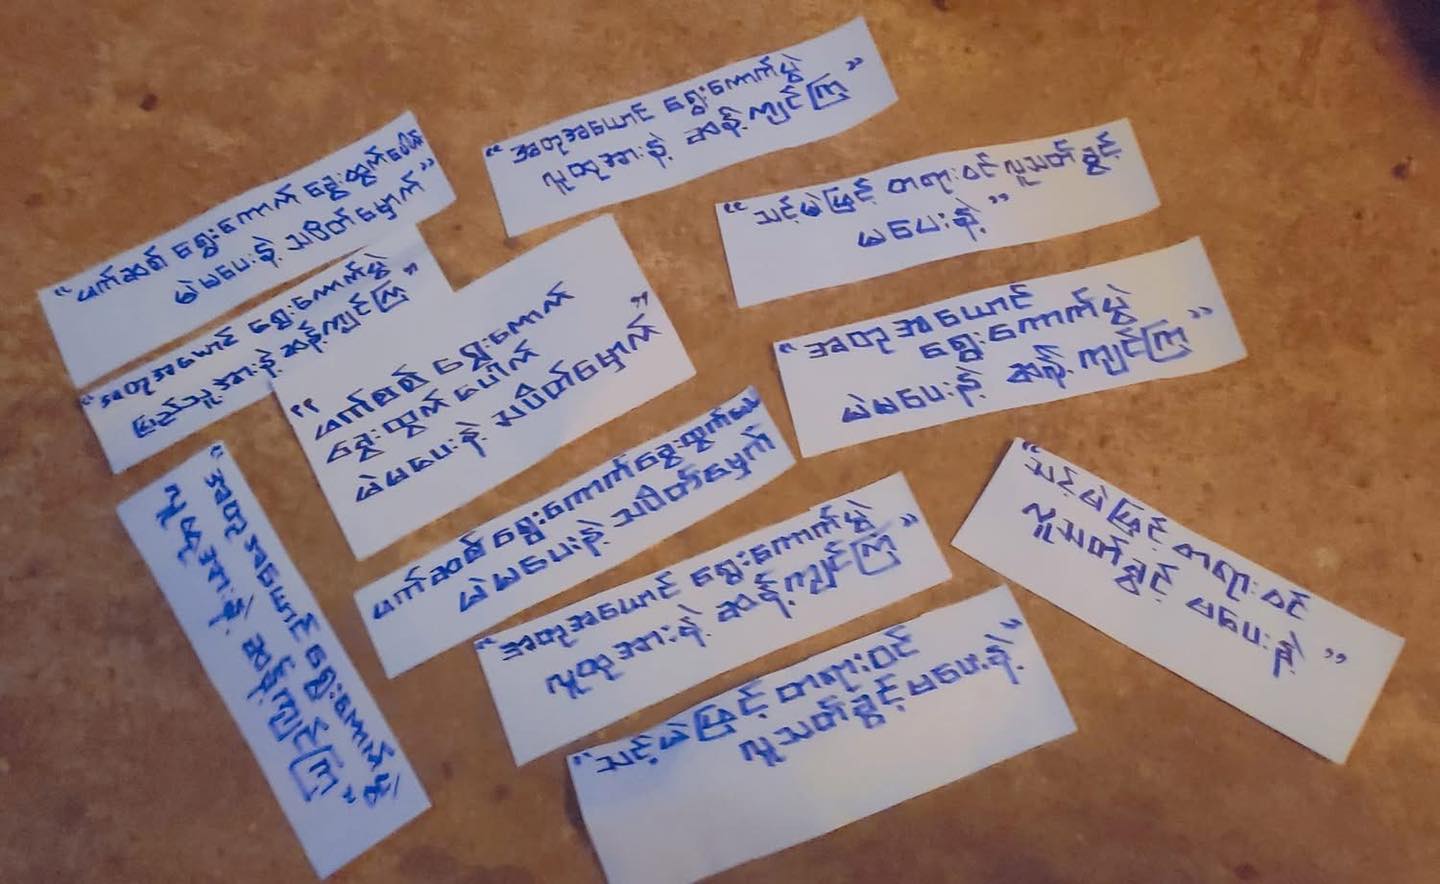 “အတုအယောင် ရွေးကောက်ပွဲ
လူထုအားနဲ့ ဆန့်ကျင်ကြ”
“ဖက်ဆစ် ရွေးကောက် ရွေးထွက်ပေါက်
မဲမပေးနဲ့ သပိတ်မှောက်”
“သင့်မဲဖြင့် တရားဝင် လူသတ်ခွင့်
မပေးနဲ့”
“အတုအယောင် ရွေးကောက်ပွဲ
ပြည်သူ့အားနဲ့ ဆန့်ကျင်ကြ”
“ဖက်ဆစ် ရွေးကောက်
ရွေးထွက်ပေါက်
မဲမပေးနဲ့ သပိတ်မှောက်”
“အတုအယောင်
ရွေးကောက်ပွဲ
မဲမပေးနဲ့ ဆန့်ကျင်ကြ”
ဖက်ဆစ် ရွေးကောက်ရွေးထွက်ပေါက်
မဲမပေးနဲ့ သပိတ်မှောက်
“အတုအယောင် ရွေးကောက်ပွဲ
လူထုအားနဲ့ ဆန့်ကျင်ကြ”
“အတုအယောင် ရွေးကောက်ပွဲ
လူထုအားနဲ့ ဆန့်ကျင်ကြ”
“သင့်မဲဖြင့် တရားဝင်
လူသတ်ခွင့် မပေးနဲ့”
“သင့်မဲဖြင့် တရားဝင်
လူသတ်ခွင့် မပေးနဲ့”